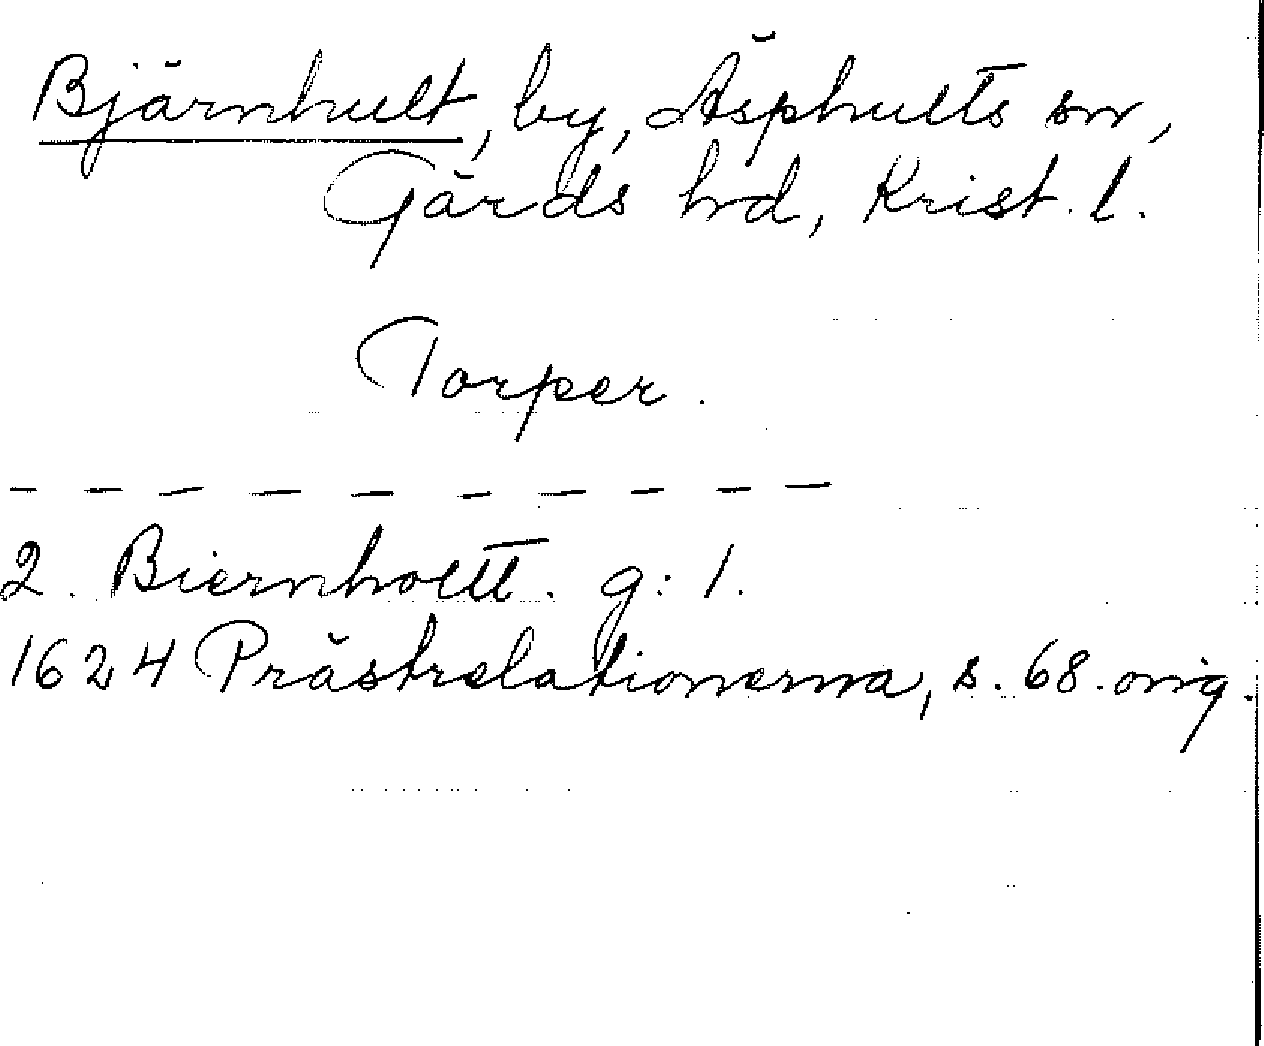 Bjärnhult, by, Äsphults sn,
Gärds hd, Krist. l.
Torper.
– – – – – – – – – –
2. Biernholtt. g: 1.
1624 Prästrelationerna, s. 68. orig.